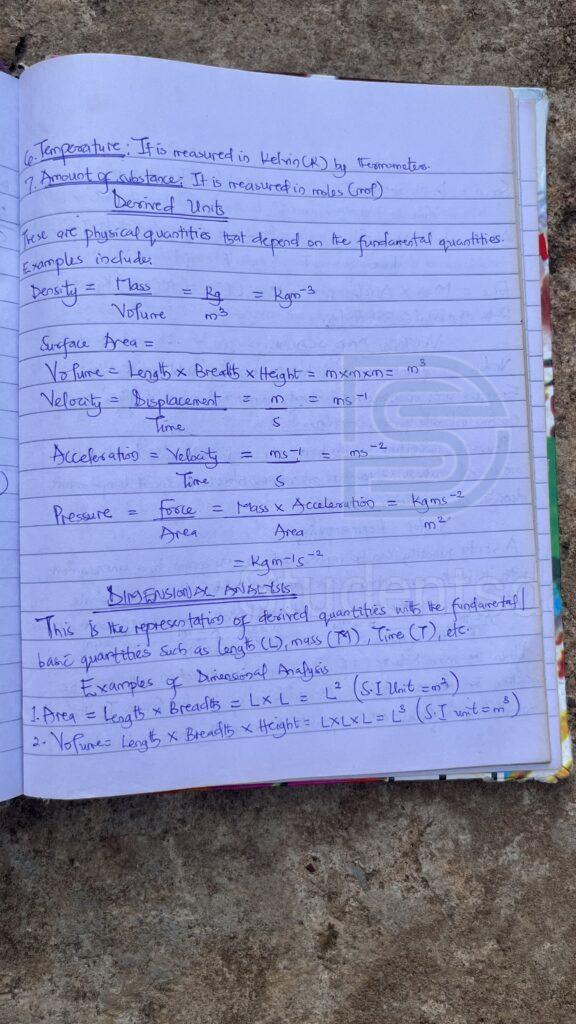 6. Temperature: It is measured in Kelvin (K) by thermometers.
7. Amount of substance: It is measured in moles (mol)
Derived Units
These are physical quantities that depend on the fundamental quantities.
Examples include:
Density = Mass/Volume = kg/m³ = kgm⁻³
Surface Area =
Volume = Length × Breadth × Height = m×m×m = m³
Velocity = Displacement/Time = m/s = ms⁻¹
Acceleration = Velocity/Time = ms⁻¹/s = ms⁻²
Pressure = Force/Area = Mass × Acceleration/Area = kgms⁻²/m²
= kgm⁻¹s⁻²
DIMENSIONAL ANALYSIS
This is the representation of derived quantities with the fundamental/
basic quantities such as Length (L), mass (M), Time (T), etc.
Examples of Dimensional Analysis
1. Area = Length × Breadth = L × L = L² (S.I Unit = m²)
2. Volume = Length × Breadth × Height = L×L×L = L³ (S.I unit = m³)